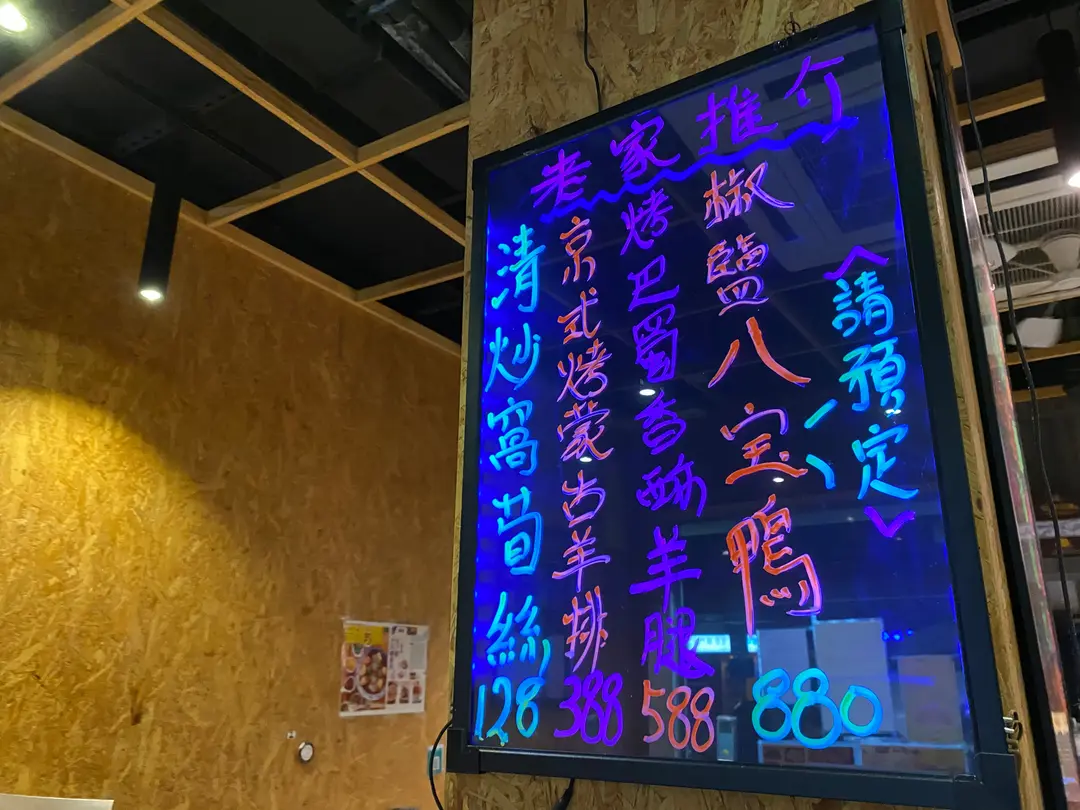 老家推介
椒鹽八宝鴨
880
︿請預定﹀
烤巴蜀香酥羊腿
588
京式烤蒙古羊排
388
清炒窩荀絲
128